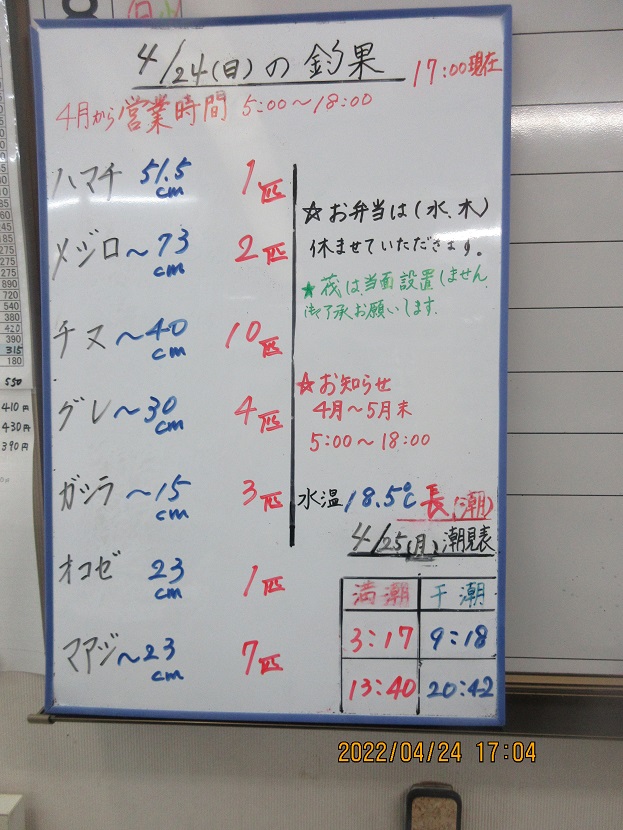 4/24(日)の釣果
17:00現在
4月から営業時間 5:00〜18:00
ハマチ 51.5cm 1匹
メジロ 〜73cm 2匹
チヌ 〜40cm 10匹
グレ 〜30cm 4匹
ガシラ 〜15cm 3匹
オコゼ 23cm 1匹
マアジ 〜23cm 7匹
☆お弁当は(水、木)
休ませていただきます。
★筏は当面設置しません
御了承お願いします.
☆お知らせ
4月〜5月末
5:00〜18:00
水温 18.5℃ 長(潮)
4/25(月)潮見表
満潮 干潮
3:17 9:18
13:40 20:42
315
180
550
410円
430円
390円
2022/04/24 17:04